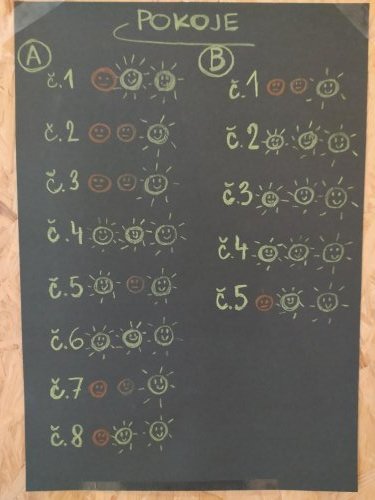 POKOJE
A
č.1
č.2
č.3
č.4
č.5
č.6
č.7
č.8
B
č.1
č.2
č.3
č.4
č.5